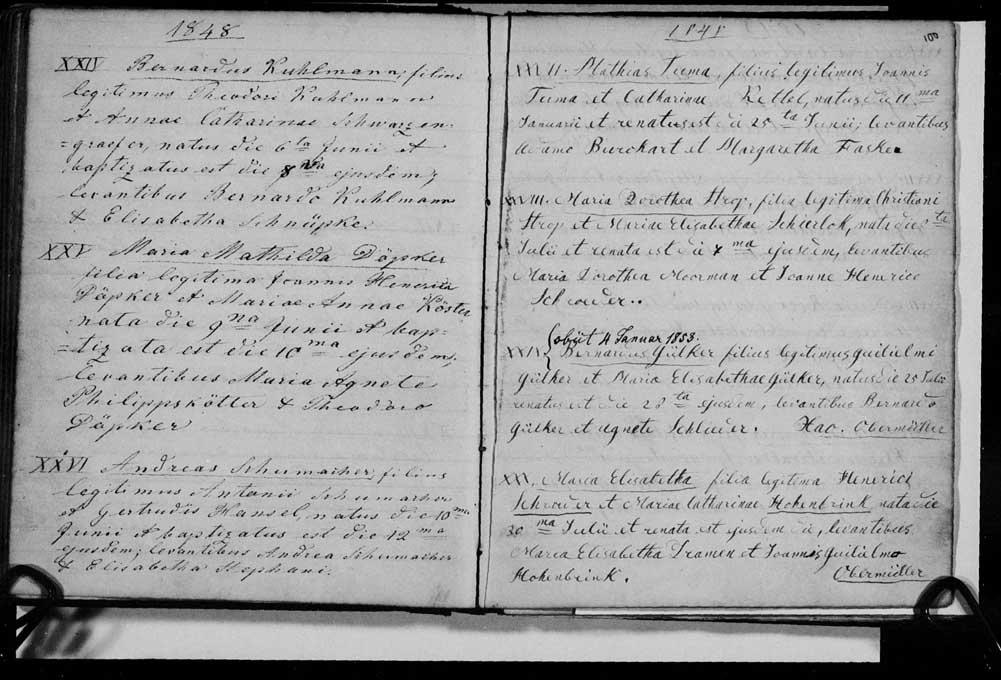 1848
XXIV Bernardus Kuhlmann, filius
legitimus Theodori Kuhlmann
et Annae Catharinae Schwarzen-
=graefer, natus die 6ta Junii et
baptizatus est die 8va ejusdem,
levantibus Bernardo Kuhlmann
& Elisabetha Schnüpke.
XXV Maria Mathilda Däpker
filia legitima Joannis Henerici
Däpker et Mariae Annae Köster
nata die 9na Junii et bap=
=tizata est die 10ma ejusdem,
levantibus Maria Agnete
Philippskötter & Theodoro
Däpker
XXVI Andreas Schumacher, filius
legitimus Antonii Schumacher
et Gertrudis Hansel, natus die 10ma
Junii et baptizatus est die 12ma
ejusdem; levantibus Andrea Schumacher
& Elisabetha Stephani.
1848
100
XXVII. Mathias Tuma, filius legitimus Joannis
Tuma et Catharinae Kettel, natus die 11ma
Januarii et renatus est die 25ta Junii; levantibus
Adamo Burckart et Margaretha Faske
XXVIII. Maria Dorothea Strop, filia legitima Christiani
Strop et Mariae Elisabethae Schierlok, nata die
Julii et renata est die ma ejusdem, levantibus
Maria Dorothea Moorman et Joanne Henrico
Schroeder..
obiit 4 Januar 1853.
XXIX. Bernardus Gülker filius legitimus Guilielmi
Gülker et Maria Elisabethae Gülker, natus die 25 Julii
renatus est die 28ta ejusdem, levantibus Bernardo
Gülker et Agnete Schlueder. Hac. Obermüller
XXX. Maria Elisabetha filia legitima Henerici
Schroder et Mariae Catharinae Hokenbrink, nata die
30ma Julii et renata est ejusdem die, levantibus
Maria Elisabetha Tramen et Joannes Guilielmo
Hokenbrink.
Obermüller